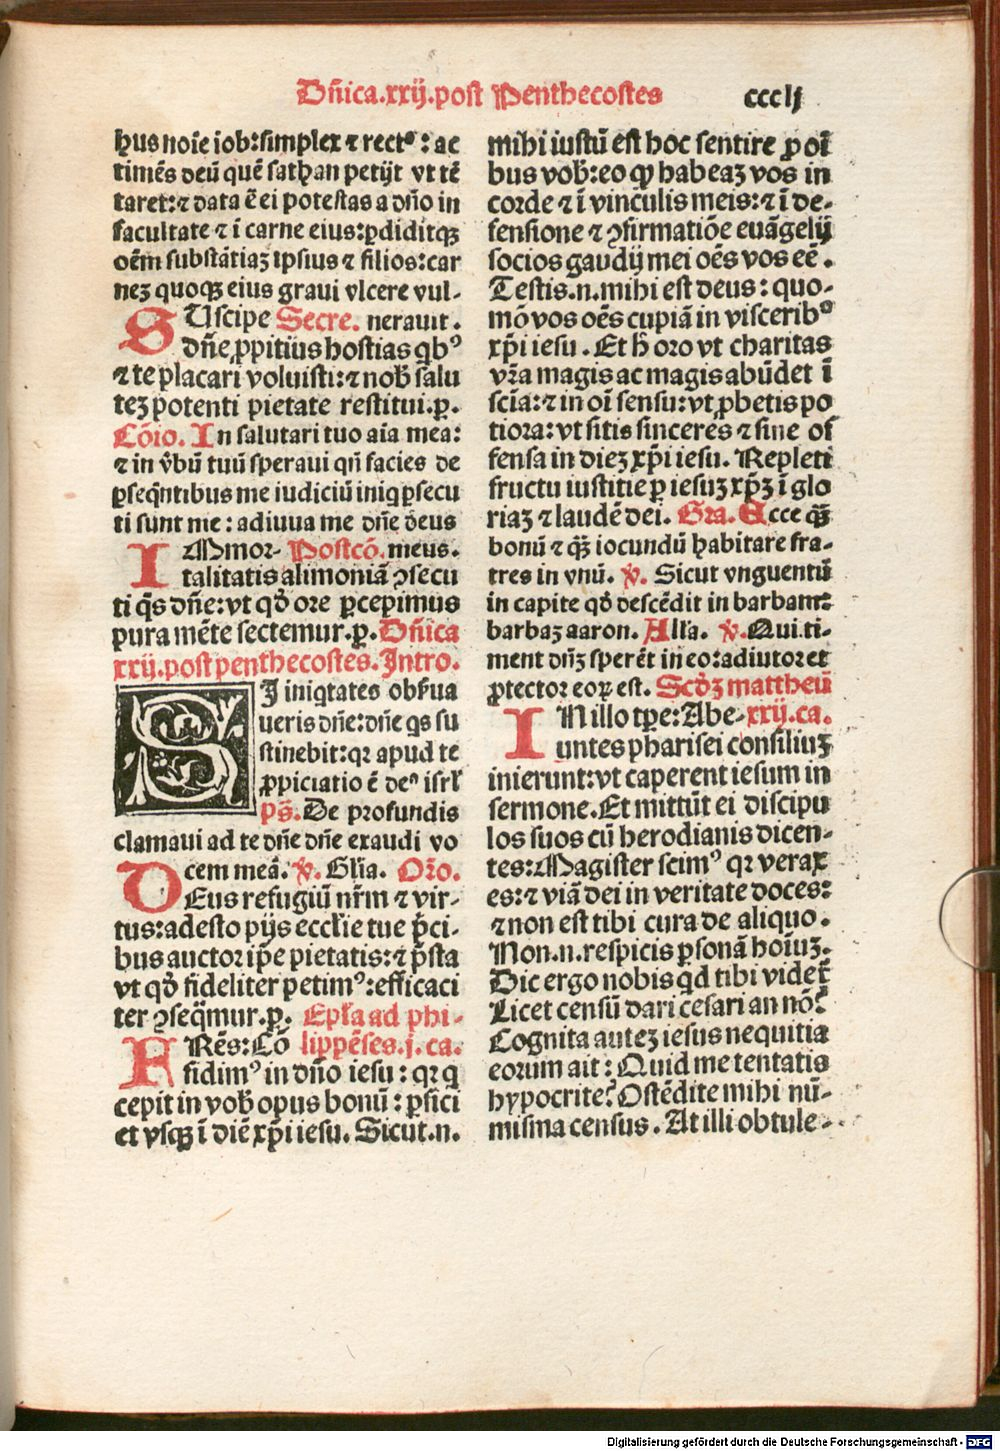 Dñica.xxij.post Penthecostes
ccclj
hus noīe iob:simplex ⁊ rectꝰ: ac
timēs deū quē sathan petijt vt tē
taret:⁊ data ē ei potestas a dño in
facultate ⁊ ī carne eius:ꝑdiditqꝫ
oēm substātiaꝫ ipsius ⁊ filios:car
neꝫ quoqꝫ eius graui vlcere vul-
SUscipe Secre. nerauit.
dñe ꝓpitius hostias qbꝰ
⁊ te placari voluisti:⁊ nob̄ salu
teꝫ potenti pietate restitui.ꝑ.
Cōio. In salutari tuo aīa mea:
⁊ in v̄bū tuū speraui qñ facies de
ꝑseq̄ntibus me iudiciū iniq ꝑsecu
ti sunt me: adiuua me dñe deus
IMmor- Postcō. meus.
talitatis alimoniā ꝯsecu
ti q̄s dñe:vt qd̄ ore ꝑcepimus
pura mēte sectemur.ꝑ. Dñica
xxij.post penthecostes. Intro.
SI iniqtates obẜua
ueris dñe:dñe qs su
stinebit:qꝛ apud te
ꝓpiciatio ē deꝰ isrł
pś. De profundis
clamaui ad te dñe dñe exaudi vo
cem meā. ℣. Glia. Oro.
DEus refugiū nr̄m ⁊ vir-
tus:adesto pijs ecclie tue p̄ci-
bus auctor ip̄e pietatis:⁊ p̄sta
vt qd̄ fideliter petimꝰ:efficaci
ter ꝯseq̄mur.ꝑ. Epła ad phi-
FRēs:Cō lippēses.j.ca.
fidimꝰ in dño iesu: qꝛ q
cepit in vob̄ opus bonū: ꝑfici
et vsqꝫ ī diē xp̄i iesu. Sicut.n.
mihi iustū est hoc sentire ꝓ oī
bus vob̄:eo qꝙ habeaꝫ vos in
corde ⁊ ī vinculis meis:⁊ ī de-
fensione ⁊ ꝯfirmatiōe euāgelij
socios gaudij mei oēs vos eē.
Testis.n.mihi est deus: quo-
mō vos oēs cupiā in visceribꝰ
xp̄i iesu. Et h̄ oro vt charitas
vr̄a magis ac magis abūdet ī
scīa:⁊ in oī sensu:vt ꝓbetis po
tiora:vt sitis sinceres ⁊ sine of
fensa in dieꝫ xp̄i iesu. Repleti
fructu iustitie ꝑ iesuꝫ xp̄ꝫ ī glo
riaꝫ ⁊ laudē dei. Gra. Ecce qꝫ
bonū ⁊ qꝫ iocundū habitare fra-
tres in vnū. ℣. Sicut vnguentū
in capite qd̄ descēdit in barbam:
barbaꝫ aaron. Alla. ℣. Qui ti-
ment dñꝫ sperēt in eo:adiutor et
ꝓtector eoꝝ est. Scd̄ꝫ mattheū
IN illo tꝑe: Abe- xxij.ca.
untes pharisei consiliuꝫ
inierunt:vt caperent iesum in
sermone. Et mittūt ei discipu
los suos cū herodianis dicen-
tes: Magister scimꝰ qꝛ verax
es:⁊ viā dei in veritate doces:
⁊ non est tibi cura de aliquo.
Non.n.respicis ꝑsonā hoīuꝫ.
Dic ergo nobis qd tibi videt̄
Licet censū dari cesari an nō?
Cognita auteꝫ iesus nequitia
eorum ait: Quid me tentatis
hypocrite? Ostēdite mihi nū-
misma census. At illi obtule-
Digitalisierung gefördert durch die Deutsche Forschungsgemeinschaft - DFG